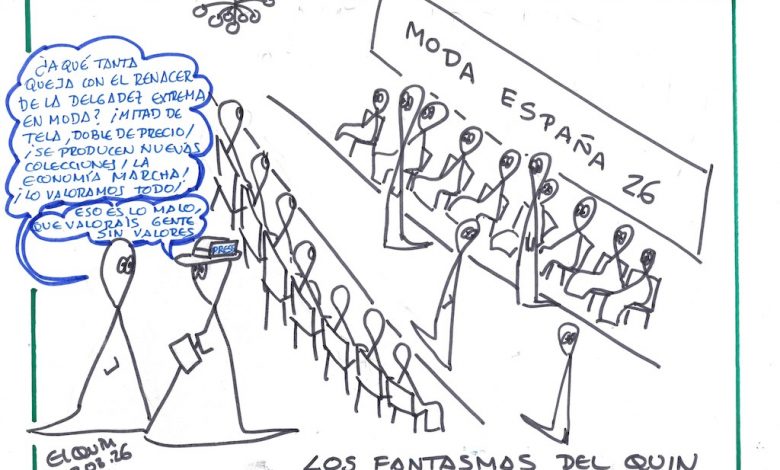 ¿A QUÉ TANTA
QUEJA CON EL RENACER
DE LA DELGADEZ EXTREMA
EN MODA? ¡MITAD DE
TELA, DOBLE DE PRECIO!
¡SE PRODUCEN NUEVAS
COLECCIONES! LA
ECONOMÍA MARCHA!
¡LO VALORAMOS TODO!
ESO ES LO MALO,
QUE VALORAIS GENTE
SIN VALORES
PRESS
MODA ESPAÑA 26
ElQUIM
LOS FANTASMAS DEL QUIN